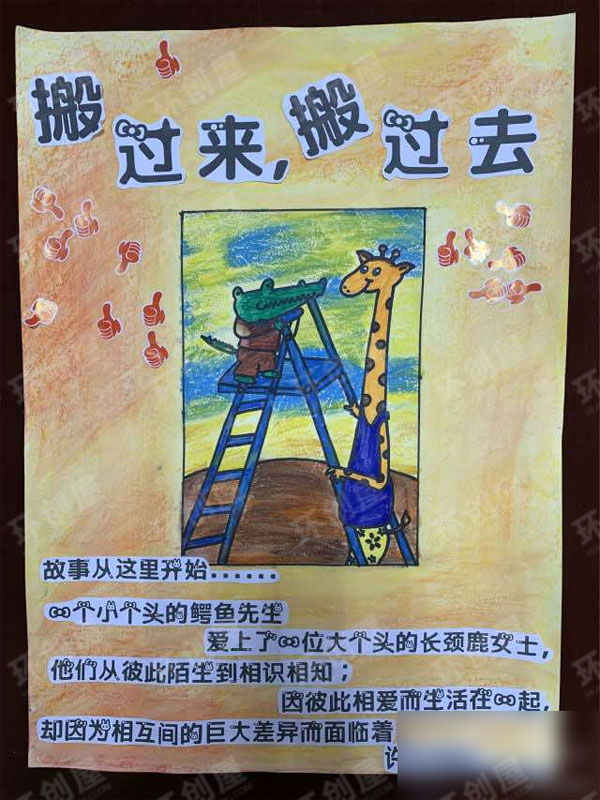 搬过来,搬过去
故事从这里开始......
一个小个头的鳄鱼先生
爱上了一位大个头的长颈鹿女士,
他们从彼此陌生到相识相知;
因彼此相爱而生活在一起,
却因为相互间的巨大差异而面临着
许
环创屋